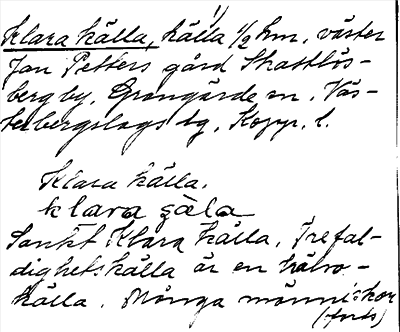 1)
Klara källa, källa 1/2 km. väster
Jan Petters gård Skattlös-
berg by, Grangärde sn, Väs-
terbergslags dg, Kopp. l.
Klara källa.
klara çäla
Sankt Klara källa. Trefal-
dighetskälla är en hälso-
källa. Många människor
(forts)